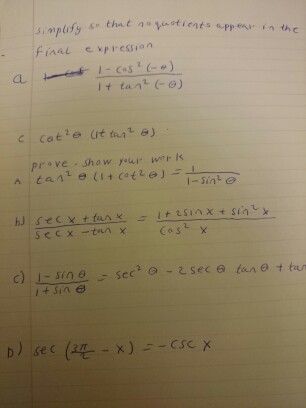 simplify so that no quotients appear in the
final expression
a 1 - cos² (-θ) / 1 + tan² (-θ)
c cot²θ (1+ tan² θ)
prove . show your work
A tan² θ (1 + cot² θ) = 1 / 1 - sin² θ
b) sec x + tan x / sec x - tan x = 1 + 2 sin x + sin² x / cos² x
c) 1 - sin θ / 1 + sin θ = sec² θ - 2 sec θ tan θ + tan
D) sec ( - x) = - csc x